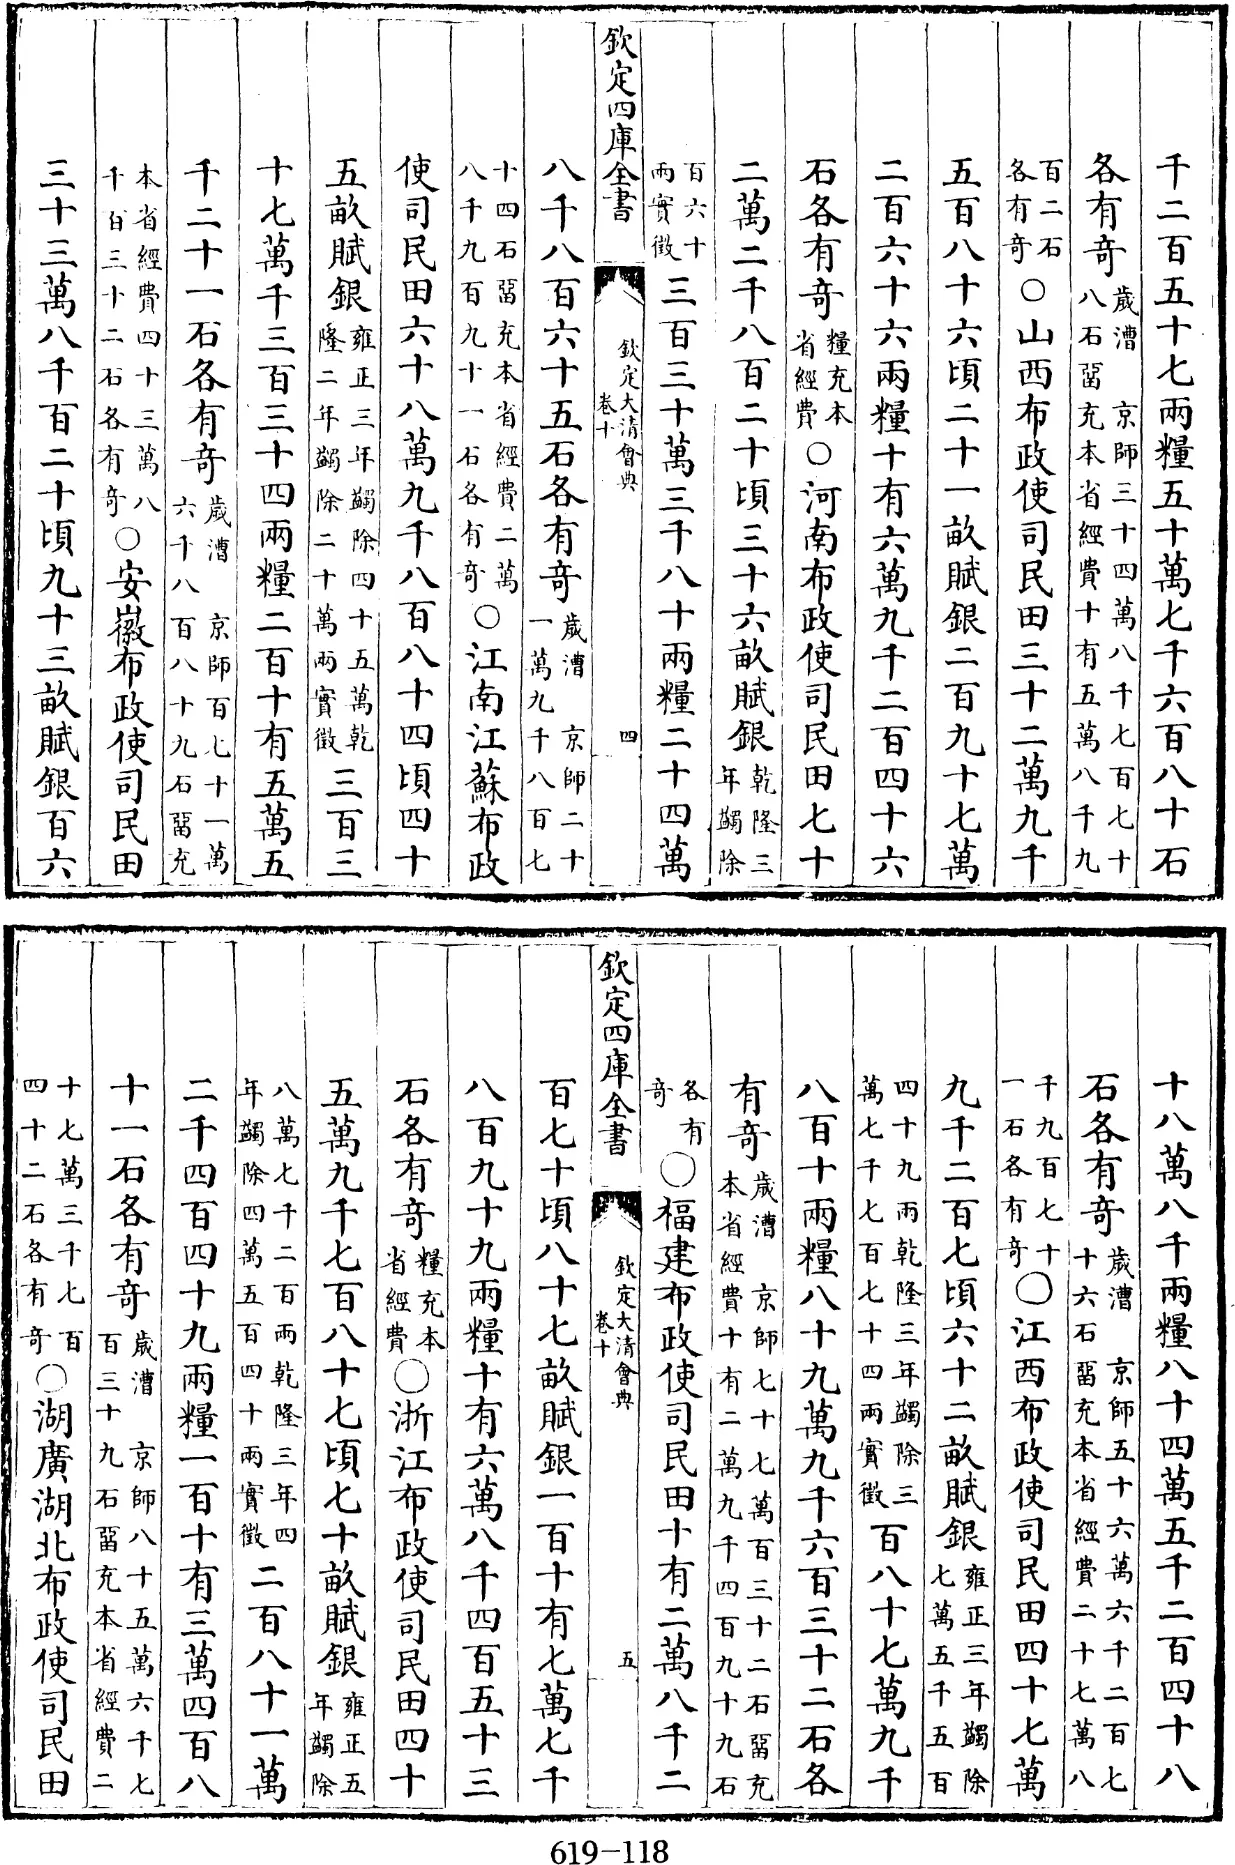 千二百五十七兩糧五十萬七千六百八十石
各有奇歲漕　京師三十四萬八千七百七十八石畱充本省經費十有五萬八千九
百二石各有奇○山西布政使司民田三十二萬九千
五百八十六頃二十一畝賦銀二百九十七萬
二百六十六兩糧十有六萬九千二百四十六
石各有奇糧充本省經費○河南布政使司民田七十
二萬二千八百二十頃三十六畝賦銀乾隆三年蠲除
百六十兩實徵三百三十萬三千八十兩糧二十四萬
欽定四庫全書
欽定大清會典
卷十
四
八千八百六十五石各有奇歲漕　京師二十一萬九千八百七
十四石畱充本省經費二萬八千九百九十一石各有奇○江南江蘇布政
使司民田六十八萬九千八百八十四頃四十
五畝賦銀雍正三年蠲除四十五萬乾隆二年蠲除二十萬兩實徵三百三
十七萬千三百三十四兩糧二百十有五萬五
千二十一石各有奇歲漕　京師百七十一萬六千八百八十九石畱充
本省經費四十三萬八千百三十二石各有奇○安徽布政使司民田
三十三萬八千百二十頃九十三畝賦銀百六
十八萬八千兩糧八十四萬五千二百四十八
石各有奇歲漕　京師五十六萬六千二百七十六石畱充本省經費二十七萬八
千九百七十一石各有奇○江西布政使司民田四十七萬
九千二百七頃六十二畝賦銀雍正三年蠲除七萬五千五百
四十九兩乾隆三年蠲除三萬七千七百七十四兩實徵百八十七萬九千
八百十兩糧八十九萬九千六百三十二石各
有奇歲漕　京師七十七萬百三十二石畱充本省經費十有二萬九千四百九十九石
各有奇○福建布政使司民田十有二萬八千二
欽定四庫全書
欽定大清會典
卷十
五
百七十頃八十七畝賦銀一百十有七萬七千
八百九十九兩糧十有六萬八千四百五十三
石各有奇糧充本省經費○浙江布政使司民田四十
五萬九千七百八十七頃七十畝賦銀雍正五年蠲除
八萬七千二百兩乾隆三年四年蠲除四萬五百四十兩實徵二百八十一萬
二千四百四十九兩糧一百十有三萬四百八
十一石各有奇歲漕　京師八十五萬六千七百三十九石畱充本省經費二
十七萬三千七百四十二石各有奇○湖廣湖北布政使司民田
619-118